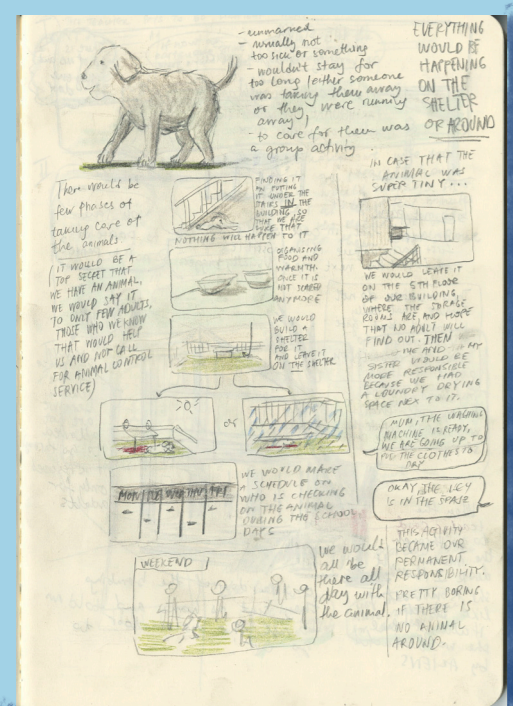 - unnamed
- usually not
too sick or something
- wouldn't stay for
too long (either someone
was taking them away
or they were running
away)
- to care for them was
a group activity.
EVERYTHING
WOULD BE
HAPPENING
ON THE
SHELTER
OR AROUND
There would be
few phases of
taking care of
the animals
(IT WOULD BE A
TOP SECRET THAT
WE HAVE AN ANIMAL,
WE WOULD SAY IT
TO ONLY FEW ADULTS,
THOSE WHO WE KNOW
THAT WOULD HELP
US AND NOT CALL
FOR ANIMAL CONTROL
SERVICE)
FINDING IT
AN PUTING
IT UNDER THE
STAIRS IN THE
BUILDING, SO
THAT WE ARE
SURE THAT
NOTHING WILL HAPPEN TO IT
ORGANISING
FOOD AND
WARMTH.
ONCE IT IS
NOT SCARED
ANYMORE
WE WOULD
BUILD A
SHELTER
FOR IT
AND LEAVE IT
ON THE SHELTER
OR
MON TUE WED THU FRI
WE WOULD MAKE
A SCHEDULE ON
WHO IS CHECKING
ON THE ANIMAL
DURING THE SCHOOL
DAYS
WEEKEND
we would
all be
there all
day with
the animal.
IN CASE THAT THE
ANIMAL WAS
SUPER TINY...
WE WOULD LEAVE IT
ON THE 5TH FLOOR
OF OUR BUILDING,
WHERE THE STORAGE
ROOMS ARE, AND HOPE
THAT NO ADULT WILL
FIND OUT. THEN
ME AND MY
SISTER WOULD BE
MORE RESPONSIBLE
BECAUSE WE HAD
A LAUNDRY DRYING
SPACE NEX TO IT.
MUM, THE WASHING
MACHINE IS READY,
WE ARE GOING UP TO
PUT THE CLOTHES TO
DRY
OKAY, THE KEY
IS IN THE SPAJZ
THIS ACTIVITY
BECAME OUR
PERMANENT
RESPONSIBILITY.
PRETTY BORING
IF THERE IS
NO ANIMAL
AROUND.